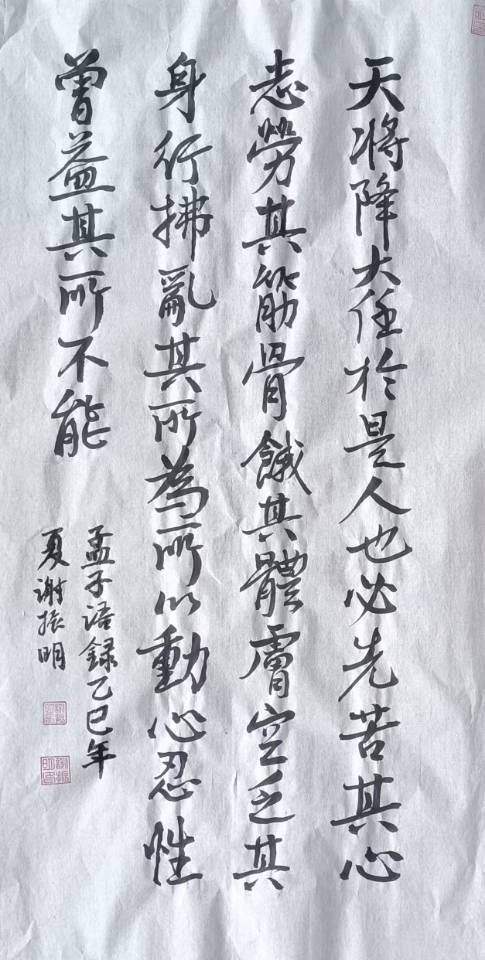 天将降大任於是人也必先苦其心
志勞其筋骨餓其體膚空乏其
身行拂亂其所為所以動心忍性
曾益其所不能
孟子语録乙巳年
夏谢振明